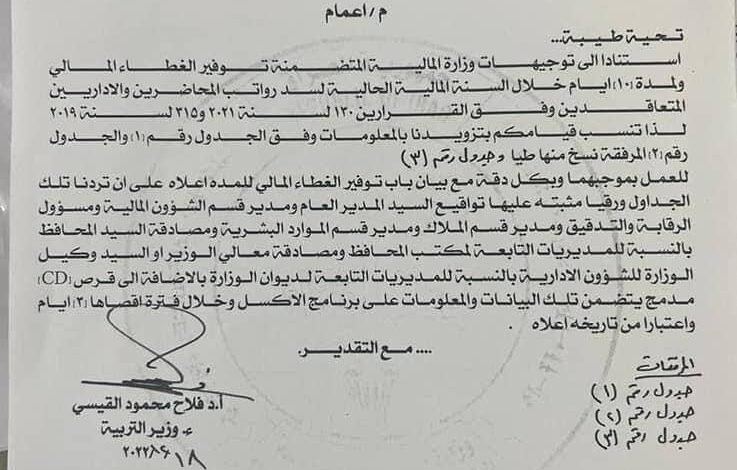 م/ اعمام
تحية طيبة...
استنادا الى توجيهات وزارة المالية المتضمنة توفير الغطاء المالي
ولمدة (١٠) ايام خلال السنة المالية الحالية لسد رواتب المحاضرين والاداريين
المتعاقدين وفق القرارين ١٣٠ لسنة ٢٠٢١ و٣١٥ لسنة ٢٠١٩
لذا تنسب قيامكم بتزويدنا بالمعلومات وفق الجدول رقم (١) والجدول
رقم (٢) المرفقة نسخ منها طيا وجدول رقم (٣)
للعمل بموجبهما وبكل دقة مع بيان باب توفير الغطاء المالي للمده اعلاه على ان تردنا تلك
الجداول ورقيا مثبته عليها تواقيع السيد المدير العام ومدير قسم الشؤون المالية ومسؤول
الرقابة والتدقيق ومدير قسم الملاك ومدير قسم الموارد البشرية ومصادقة السيد المحافظ
بالنسبة للمديريات التابعة لمكتب المحافظ ومصادقة معالي الوزير او السيد وكيل
الوزارة للشؤون الادارية بالنسبة للمديريات التابعة لديوان الوزارة بالاضافة الى قرص (CD)
مدمج يتضمن تلك البيانات والمعلومات على برنامج الاكسل وخلال فترة اقصاها (٣) ايام
واعتبارا من تاريخه اعلاه .
.... مع التقدير.
المرفقات
جدول رقم (١)
جدول رقم (٢)
جدول رقم (٣)
أ.د فلاح محمود القيسي
ع. وزير التربية